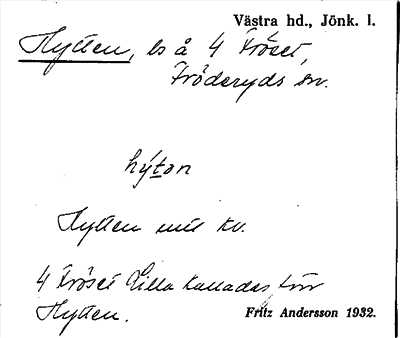 Västra hd., Jönk. l.
Hytten, ls å 4 Fröset,
Fröderyds sn.
hýtən
Hytten mit kv.
4 Fröset Lilla kallades förr
Hytten.
Fritz Andersson 1932.